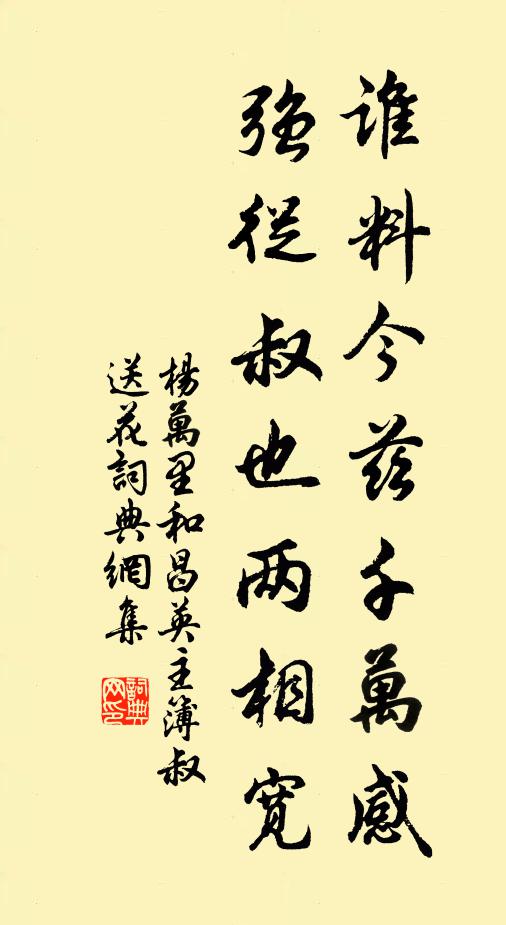 谁料今兹千萬感
强從叔也两相寛
楊萬里和昌英主簿叔
送花詞典網集
詞典
网印